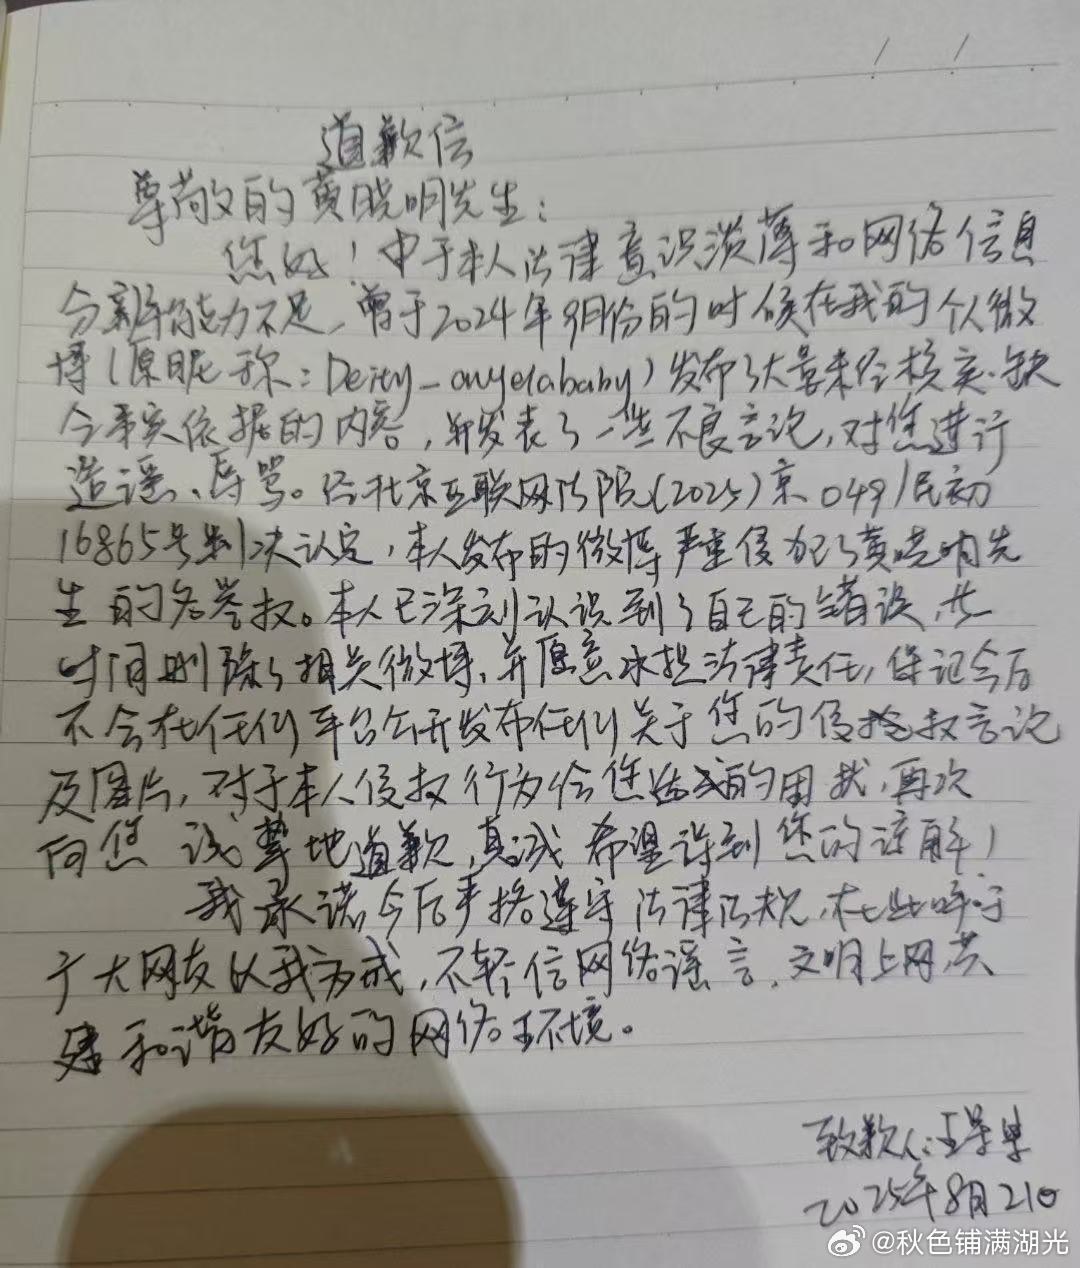 道歉信
尊敬的黄晓明先生：
您好！由于本人法律意识淡薄和网络信息
分辨能力不足，曾于2024年9月份的时候在我的个人微
博（原昵称：Deity_anyelababy）发布了大量未经核实、缺
乏事实依据的内容，并发表了一些不良言论，对您进行
造谣、辱骂。经北京互联网法院（2025）京0491民初
16865号判决认定，本人发布的微博严重侵犯了黄晓明先
生的名誉权。本人已深刻认识到了自己的错误，此
时间删除了相关微博，并愿意承担法律责任，保证今后
不会在任何平台公开发布任何关于您的侵权言论
及图片，对于本人侵权行为给您造成的困扰，再次
向您诚挚地道歉，真诚希望得到您的谅解！
我承诺今后严格遵守法律法规，在此呼吁
广大网友以我为戒，不轻信网络谣言，文明上网共
建和谐友好的网络环境。
致歉人：王
2025年8月21日
@秋色铺满湖光